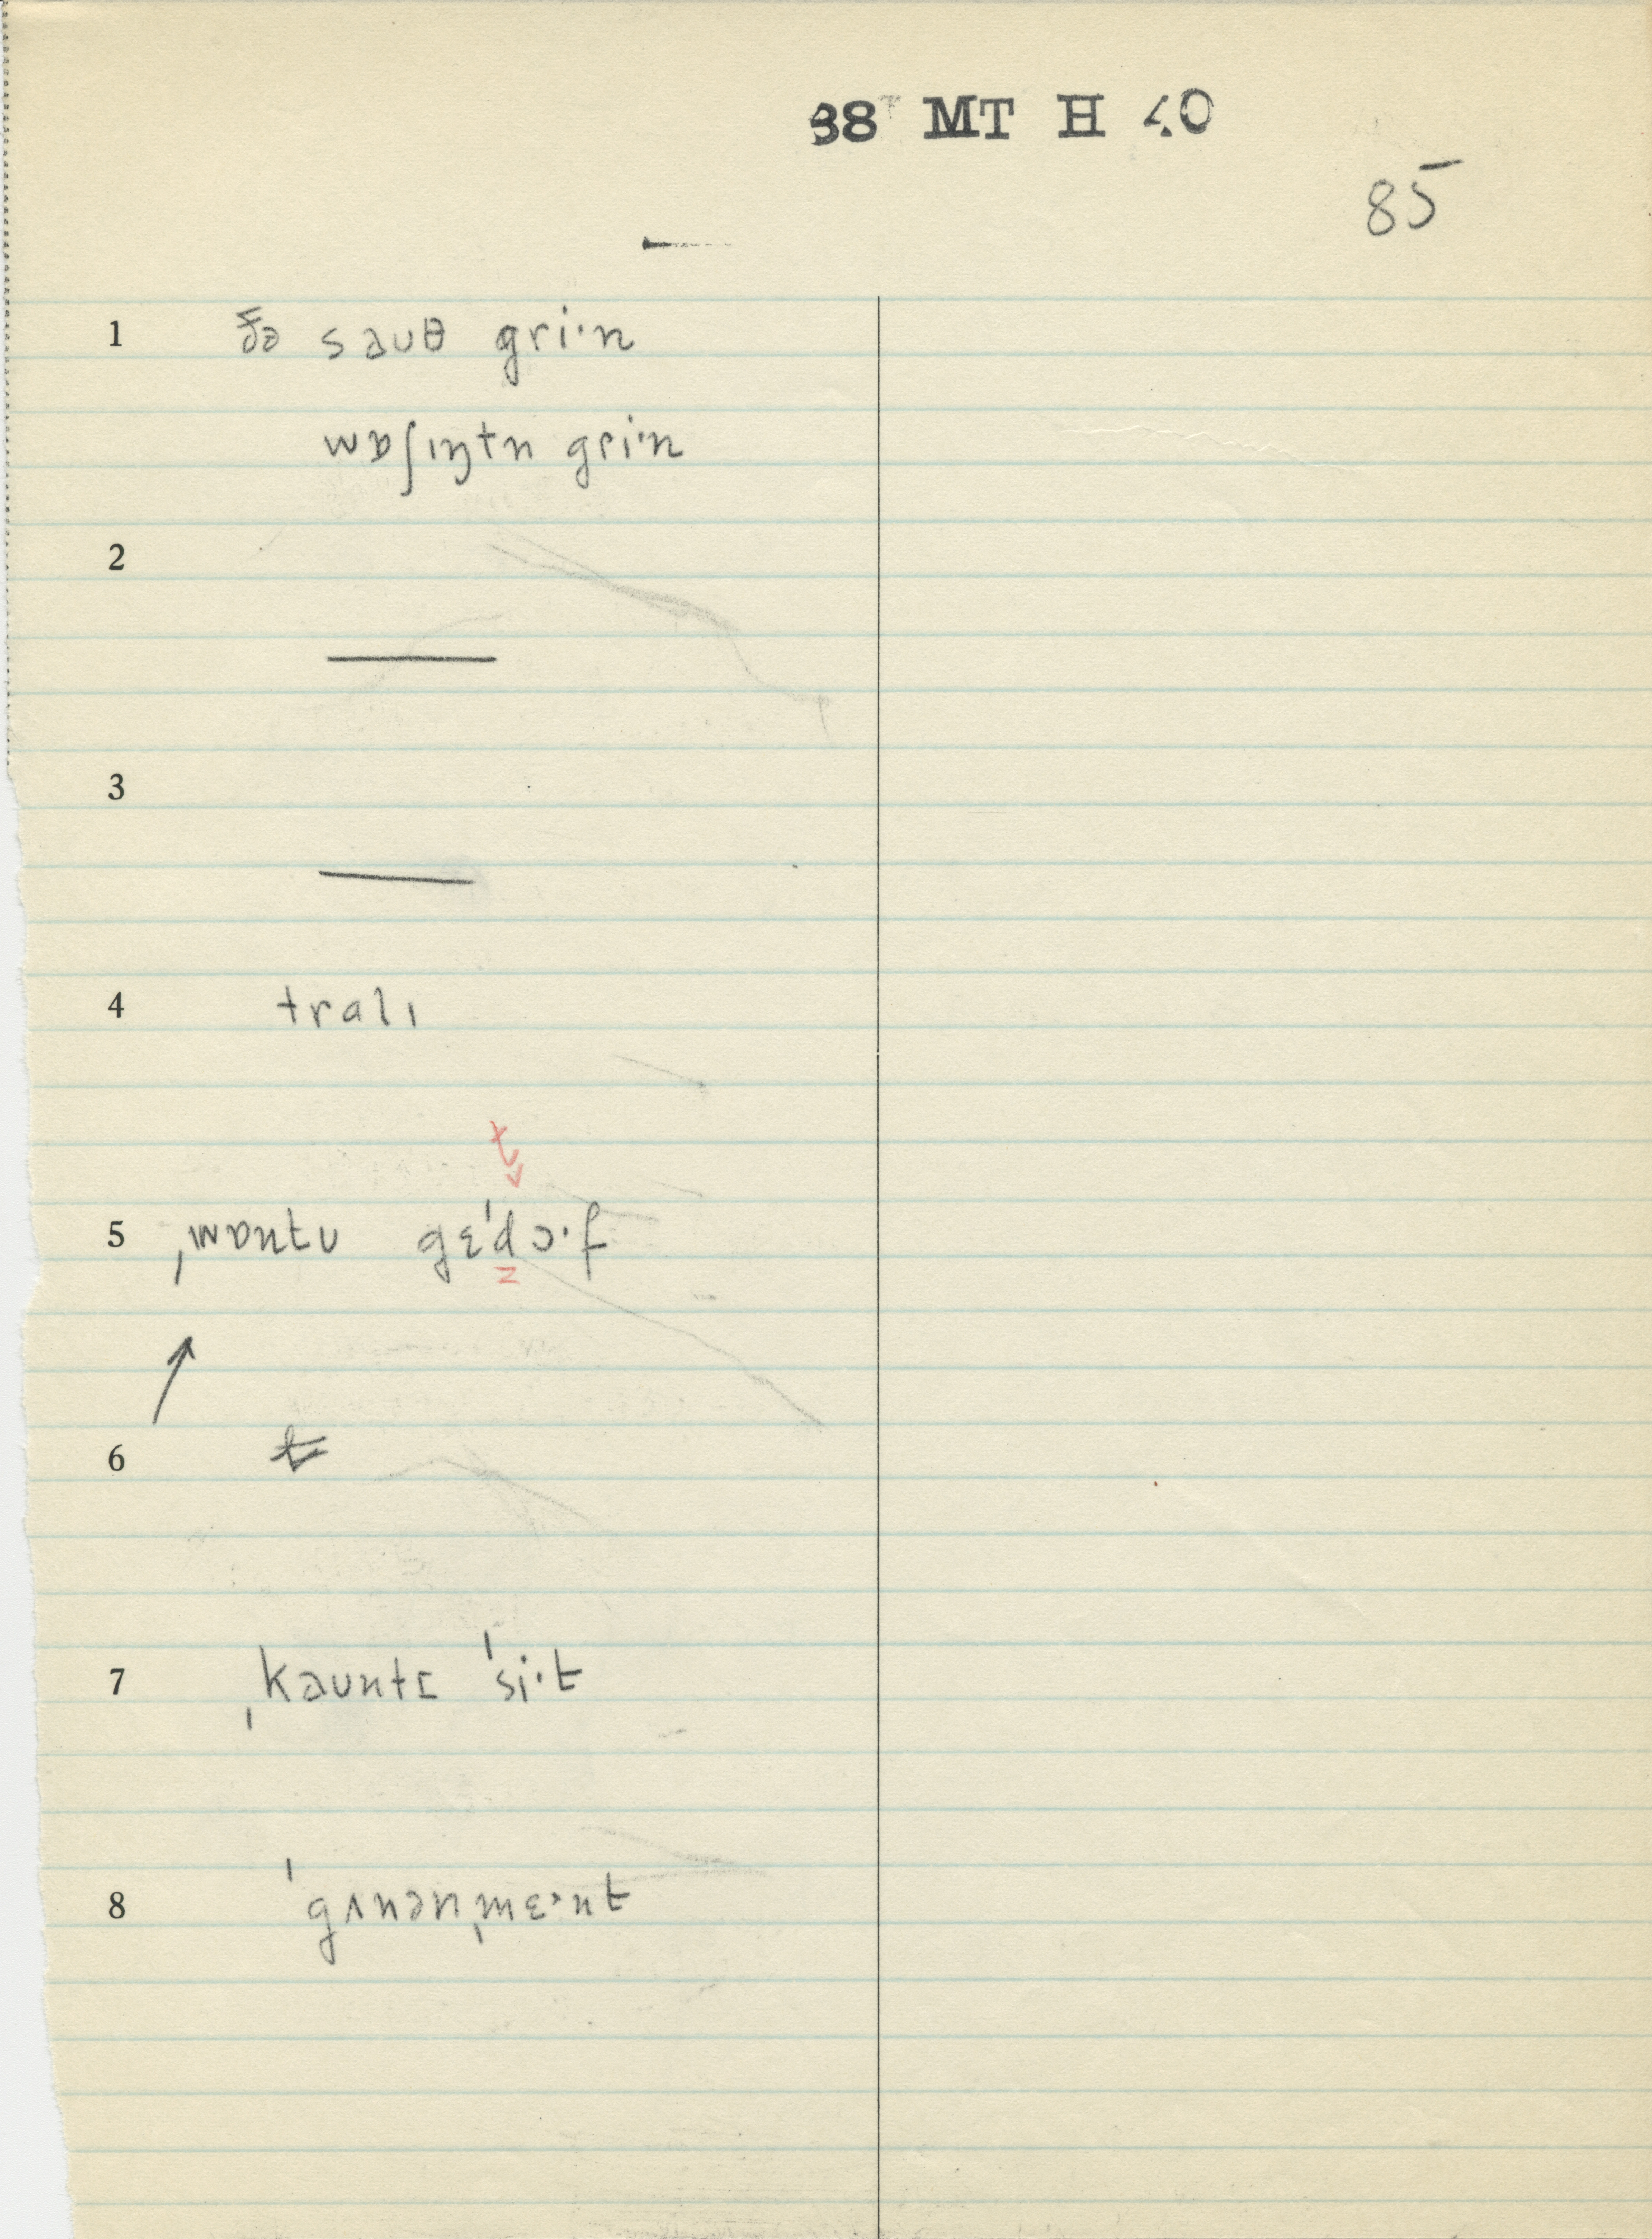 38 MT H 40
85
1 ðə səuθ gri·n
wɒʃıŋtn gri·n
2
3
4 tralı
t
5 ˌwɒntu gɛˈdɔ·f
6
7 ˌkəuntɪ ˈsi·t
8 ˈgʌnənˌmɛ·nt